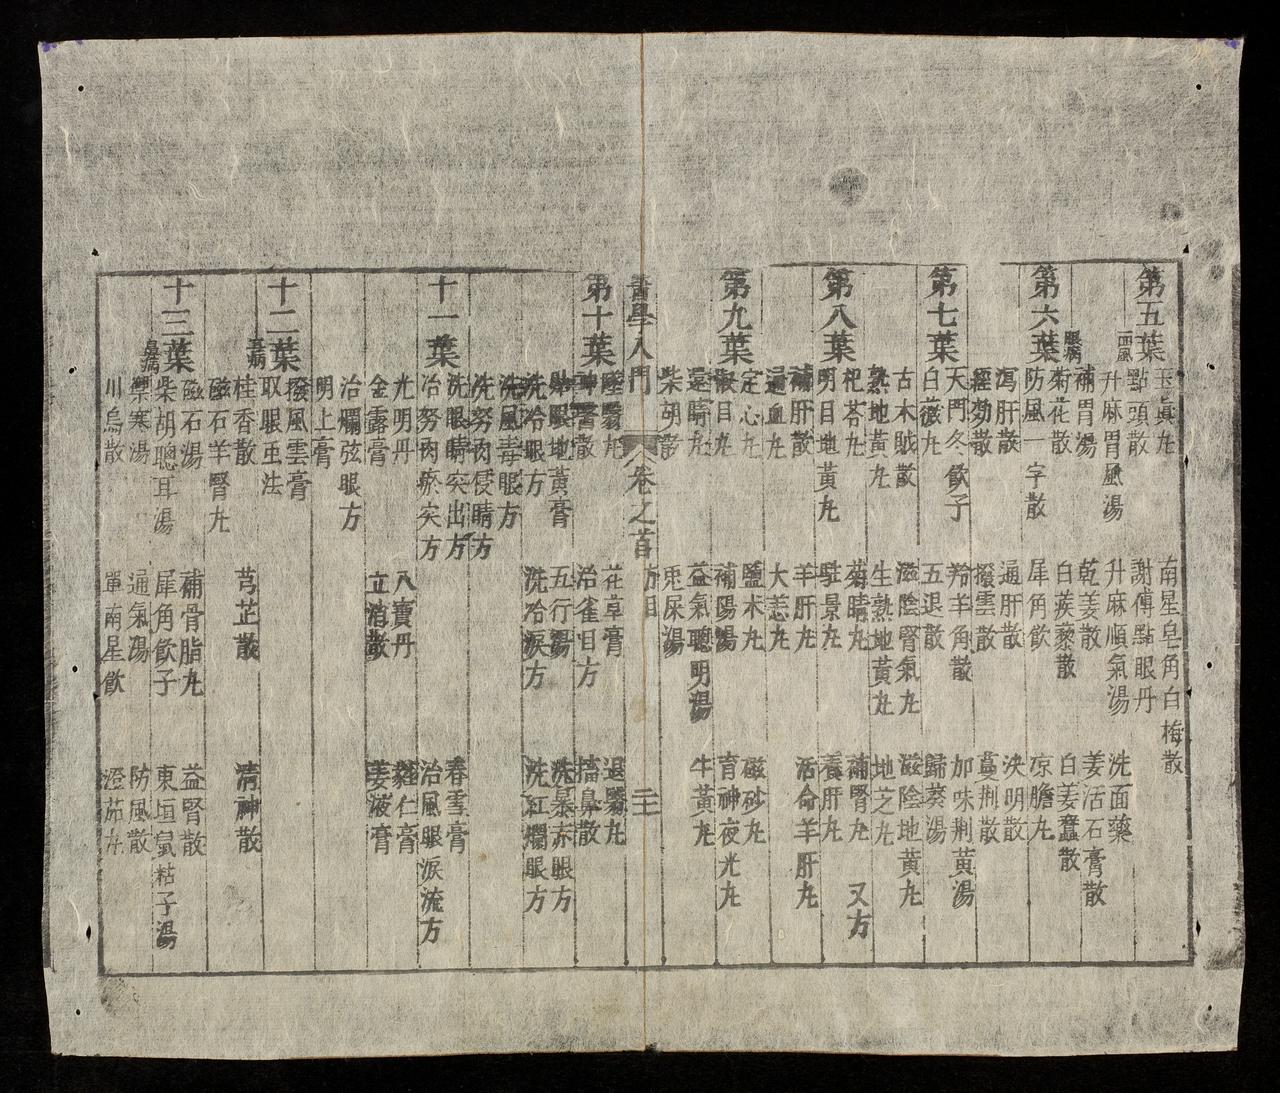 第五葉
玉眞丸 南星皂角白梅散
點頭散 謝傅點眼丹
面風 升麻胃風湯 升麻順氣湯 洗面藥
補胃湯 乾姜散 姜活石膏散
眼病 菊花散 白蒺藜散 白姜蠶散
第六葉
防風一字散 犀角飲 凉膽丸
瀉肝散 通肝散 決明散
撥雲散 蔓荆散
天門冬飲子 羚羊角散 加味荆黃湯
第七葉
白薇丸 五退散 歸葵湯
古木賊散 滋陰腎氣丸 滋陰地黃丸
熟地黃丸 生熟地黃丸 地芝丸
杞苓丸 菊睛丸 補腎丸 又方
第八葉
明目地黃丸 駐景丸 養肝丸
補肝散 羊肝丸 活命羊肝丸
還血丸 大恙丸
定心丸 鹽术丸 磁砂丸
第九葉
椒目丸 補陽湯 育神夜光丸
還睛丸 益氣聰明湯 牛黃丸
柴胡散 兎屎湯
醫學入門 卷之首 方目 二十
墜翳丸 花草膏 退翳丸
第十葉
神醫散 治雀目方 搐鼻散
貼眼地黃膏 五行湯 洗暴赤眼方
洗冷眼方 洗冷淚方 洗紅爛眼方
洗風毒眼方
洗努肉侵睛方
洗眼睛突出方 春雪膏
十一葉
治努肉瘀突方 治風眼淚流方
光明丹 八寶丹 蕤仁膏
金露膏 立消散 姜液膏
治爛弦眼方
明上膏
撥風雲膏
十二葉
取眼虫法
耳病 桂香散 芎芷散 清神散
磁石羊腎丸
磁石湯 補骨脂丸 益腎散
十三葉
柴胡聰耳湯 犀角飲子 東垣鼠粘子湯
鼻病 禦寒湯 通氣湯 防風散
川烏散 單南星飲 澄茄丸